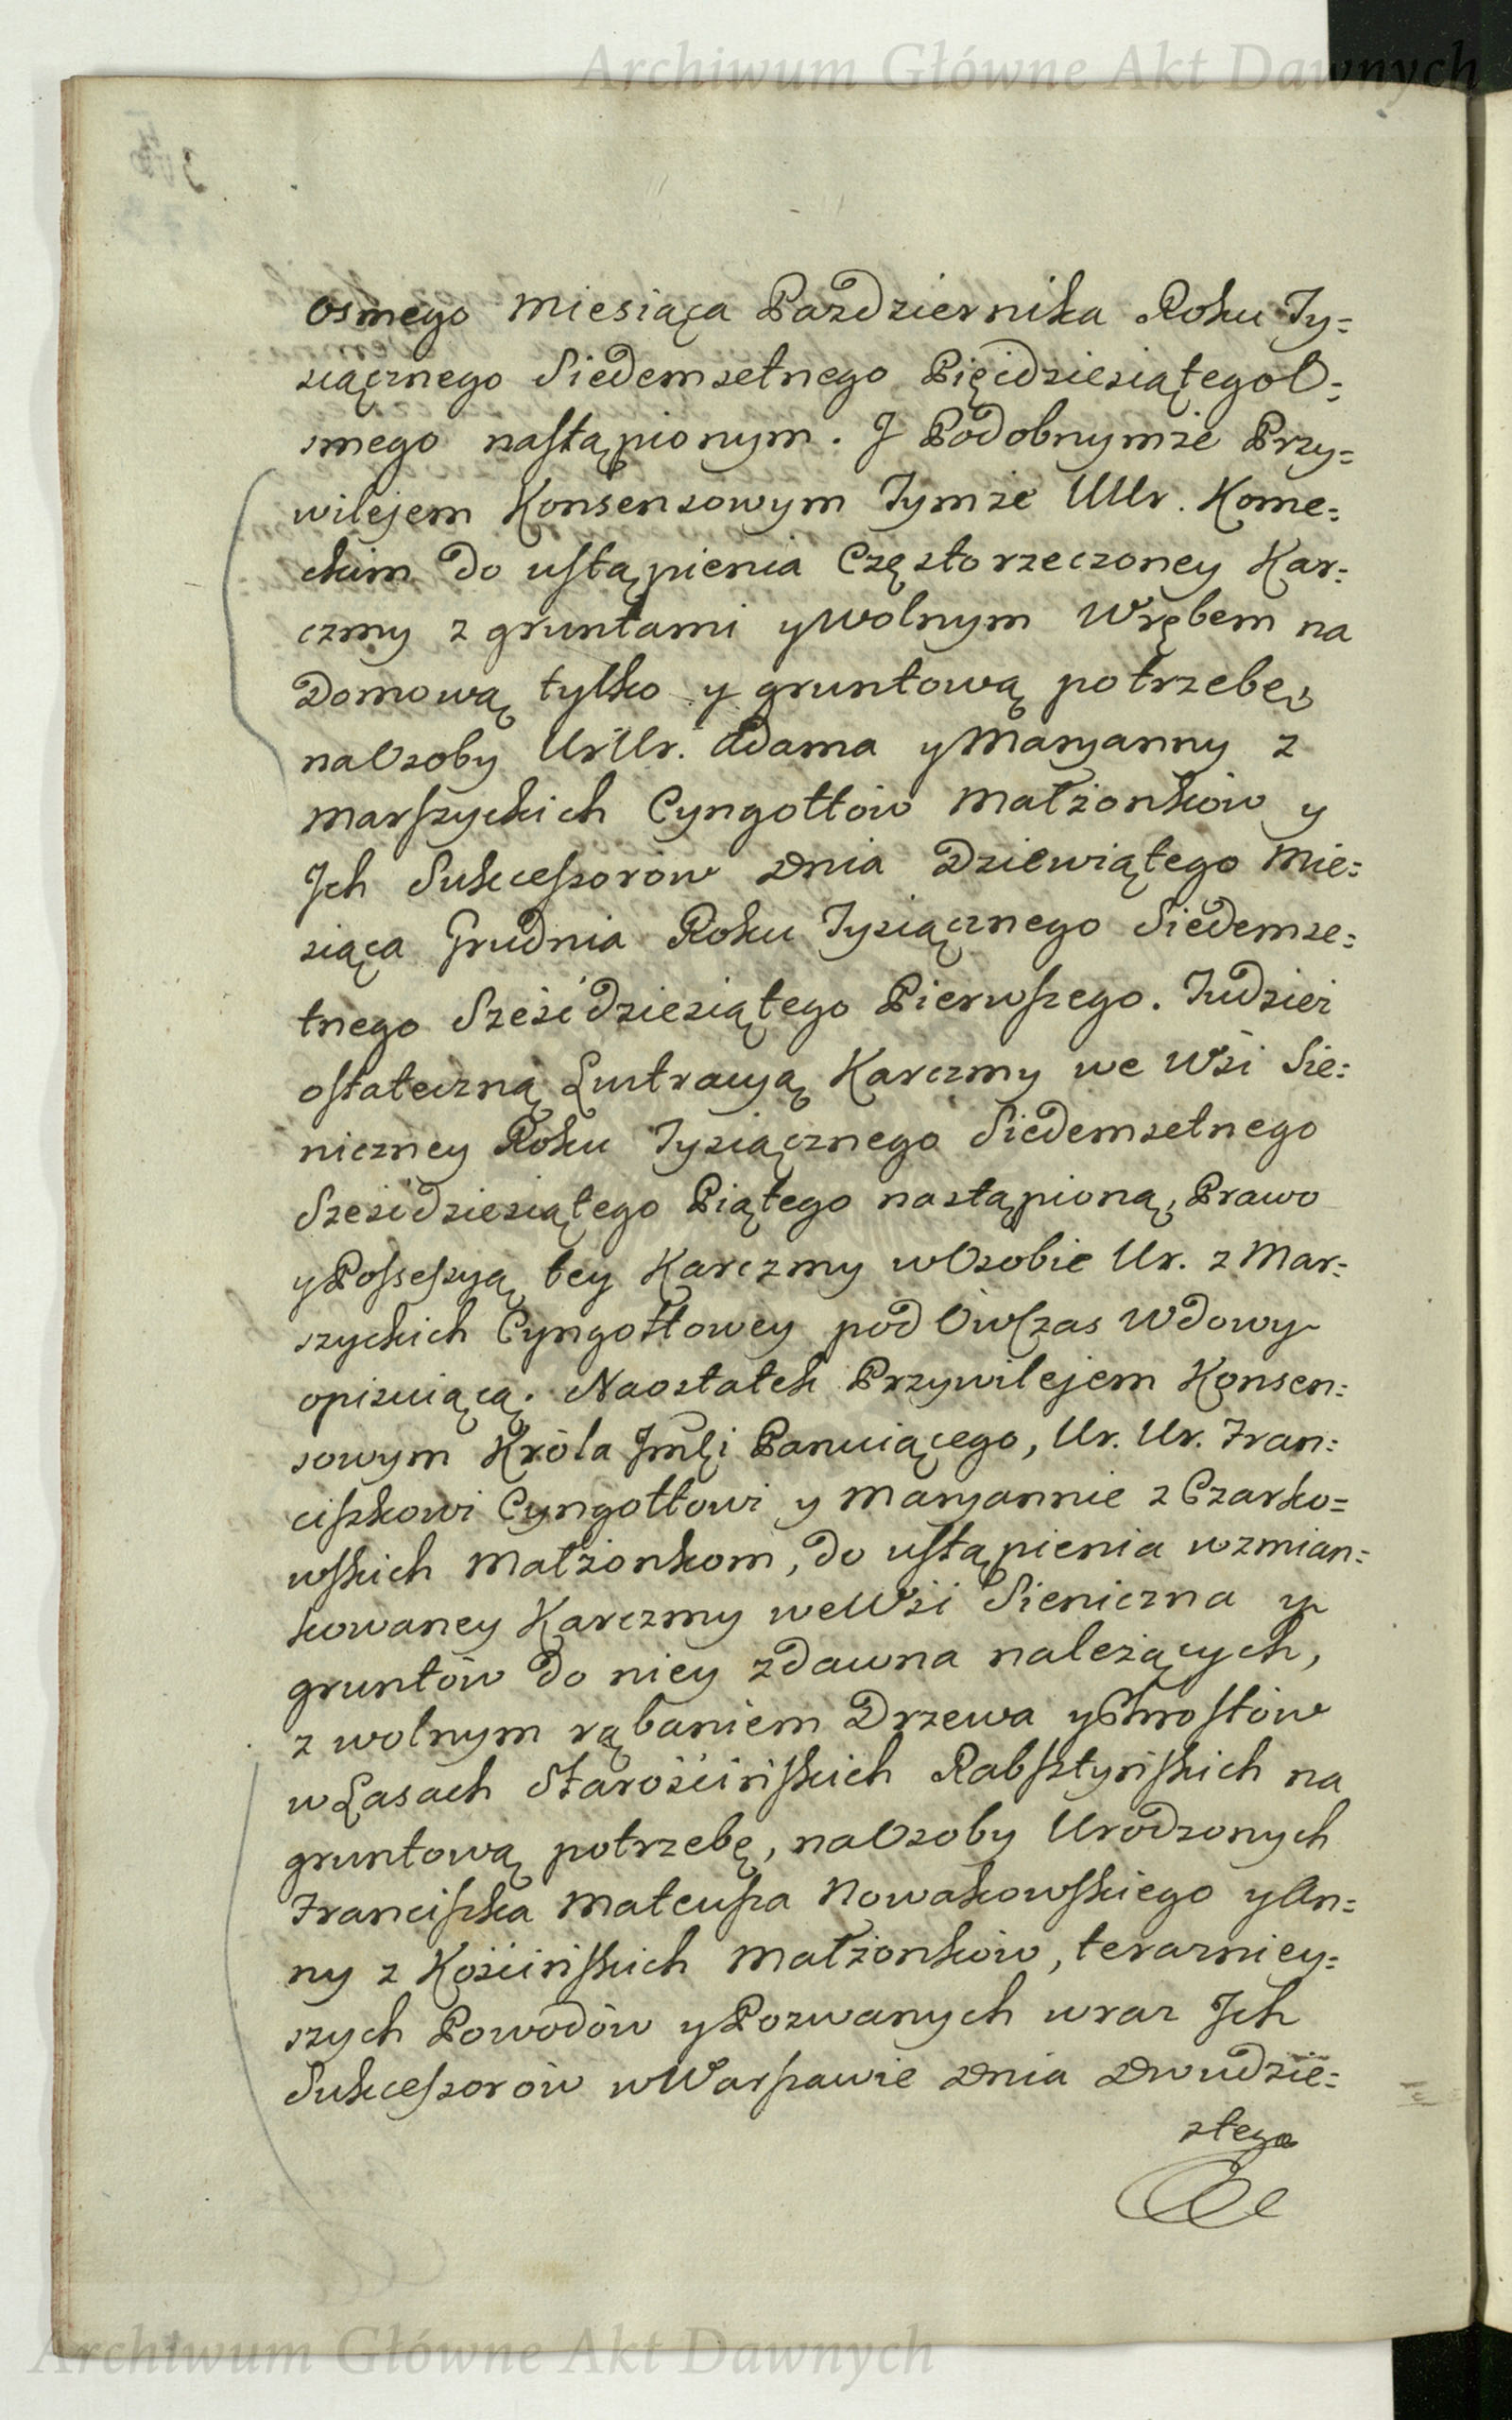 Archiwum Główne Akt Dawnych
osmego Miesiąca Pazdziernika Roku Ty=
siącznego Siedemsetnego Pięcdziesiątego O=
smego nastąpionym. J Podobnymze Przy=
wilejem Konsensowym Tymze UUr. Kome=
ckim do ustąpienia Często rzeczoney Kar=
czmy z gruntami y wolnym Wrębem na
Domową tylko y gruntową potrzebę,
na Osoby UrUr. Adama y Maryanny z
Marszyckich Cyngottów Małżonków y
Jch Sukcessorów Dnia Dziewiątego Mie=
siąca Grudnia Roku Tysiącznego Siedemse=
tnego Sześćdziesiątego Pierwszego. Tudzież
ostateczną Lustracyą Karczmy we Wsi Sie=
niczney Roku Tysiącznego Siedemsetnego
Sześćdziesiątego Piątego nastąpioną, Prawo
y Possessyą tey Karczmy w Osobie Ur. z Mar=
szyckich Cyngottowey pod Owczas Wdowy
opisuiącą. Naostatek Przywilejem Konsen=
sowym Króla Jmci Panuiącego, Ur. Ur. Fran=
ciszkowi Cyngottowi y Maryannie z Czarko=
wskich Małżonkom, do ustąpienia wzmian=
kowaney Karczmy we Wsi Sieniczna y
gruntów do niey zdawna należących,
z wolnym rąbaniem Drzewa y Chrostów
w Lasach Starościńskich Rabsztyńskich na
gruntową potrzebę, na Osoby Urodzonych
Franciszka Mateusza Nowakowskiego y An=
ny z Kościńskich Małżonków, teraźniey=
szych Powodów y Pozwanych wraz Jch
Sukcessorów w Warszawie Dnia Dwudzie=
stego
Archiwum Główne Akt Dawnych